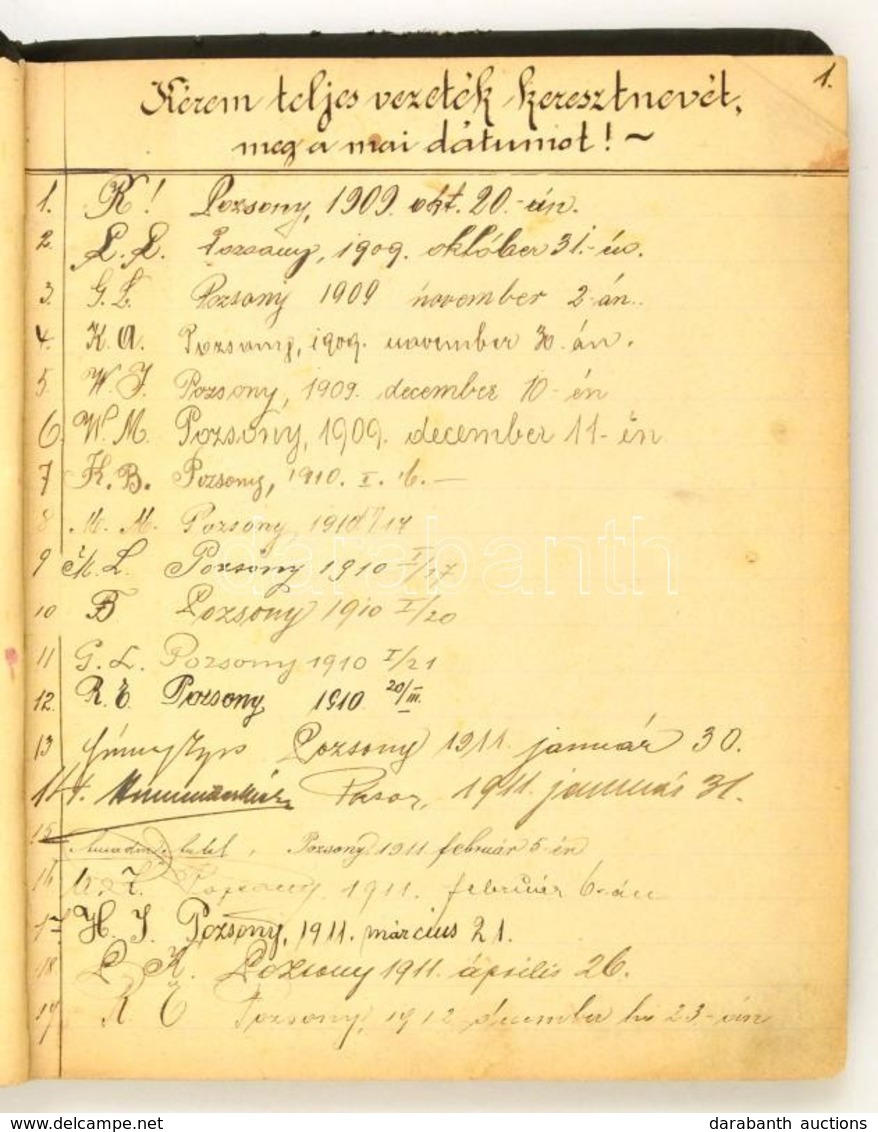 1.
Kérem teljes vezeték keresztnevét,
meg a mai dátumot! ~
1. K! Pozsony, 1909. okt. 20.-án.
2. L. L. Pozsony, 1909. október 31.-én.
3. G. L. Pozsony 1909 november 2-án.
4. K. A. Pozsony, 1909. november 30.-án.
5. W. J. Pozsony, 1909. december 10-én
6. W. M. Pozsony, 1909. december 11-én
7 K. B. Pozsony, 1910. I. 16. —
8 M. M. Pozsony 1910 I/17
9 M. L. Pozsony 1910 I/17
10 B Pozsony 1910 I/20
11 G. L. Pozsony 1910 I/21
12. R. E. Pozsony 1910 20/III.
13 Pozsony 1911. január 30.
14. 1911. január 31.
15 Pozsony 1911 február 5-én
16 Pozsony, 1911. február 6-án
17 H. J. Pozsony, 1911. március 21.
18 P. K. Pozsony 1911. április 26.
19 K E Pozsony, 1912 december hó 23-án
darabanth
www.delcampe.net
darabanth auctions